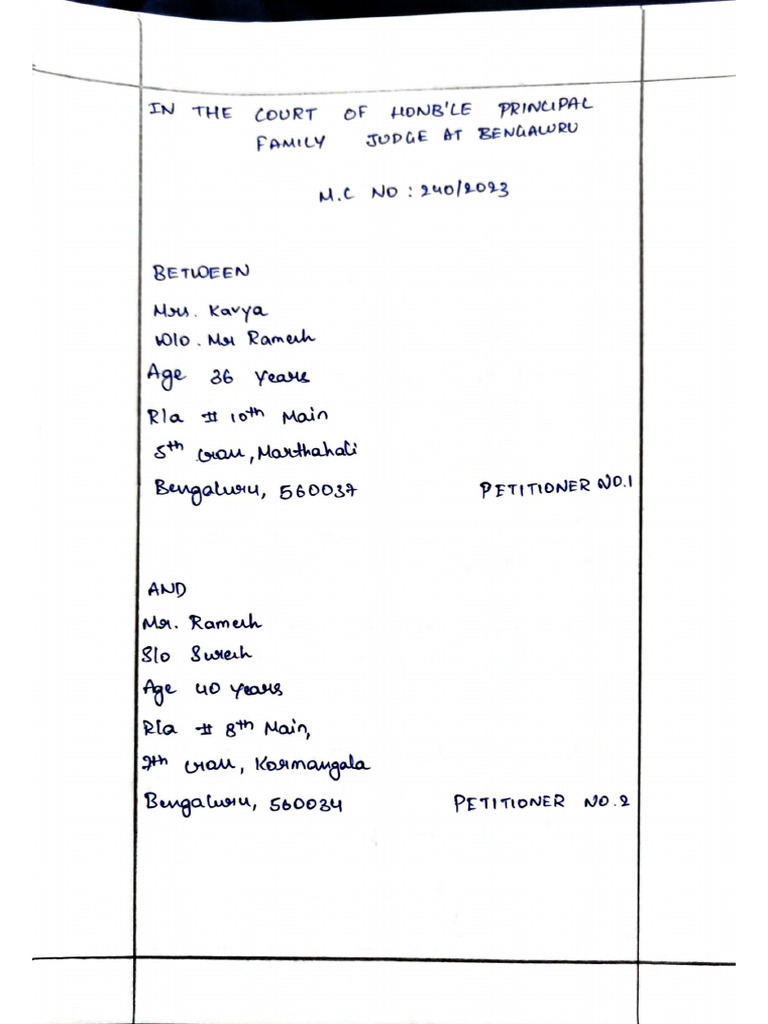 IN THE COURT OF HONB'LE PRINCIPAL
FAMILY JUDGE AT BENGALURU
M.C NO : 240/2023
BETWEEN
Mrs. Kavya
W/o. Mr Ramesh
Age 36 years
R/a # 10th Main
5th cross, Marthahali
Bengaluru, 560037 PETITIONER NO.1
AND
Mr. Ramesh
S/o Suresh
Age 40 years
R/a # 8th Main,
9th cross, Kormangala
Bengaluru, 560034 PETITIONER NO.2